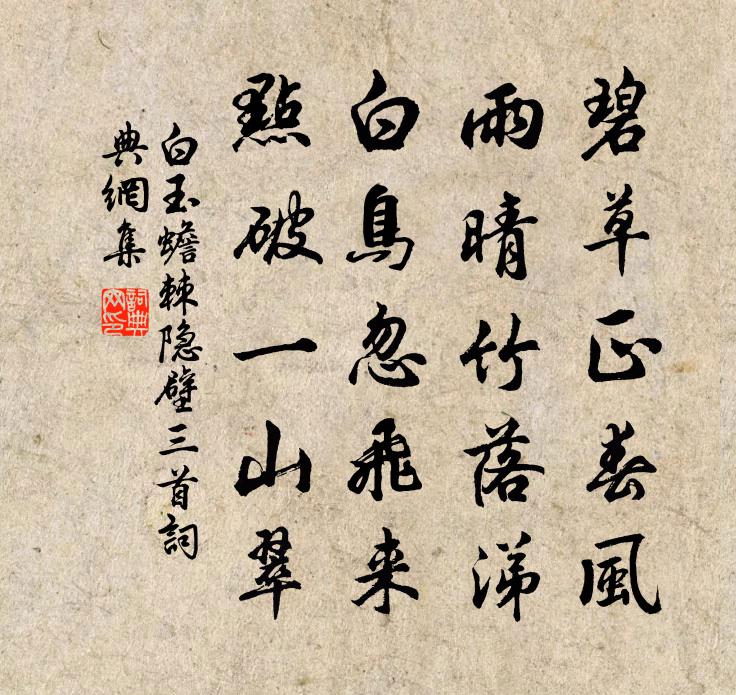 碧草正春風
雨晴竹落涕
白鳥忽飛来
點破一山翠
白玉蟾棘隐壁三首詞
典網集
詞典
网印